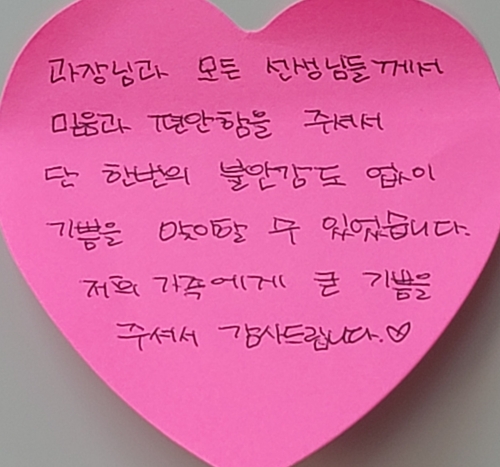 과장님과 모든 선생님들께서
믿음과 편안함을 주셔서
단 한번의 불안감도 없이
기쁨을 맞이할 수 있었습니다.
저희 가족에게 큰 기쁨을
주셔서 감사드립니다.♡